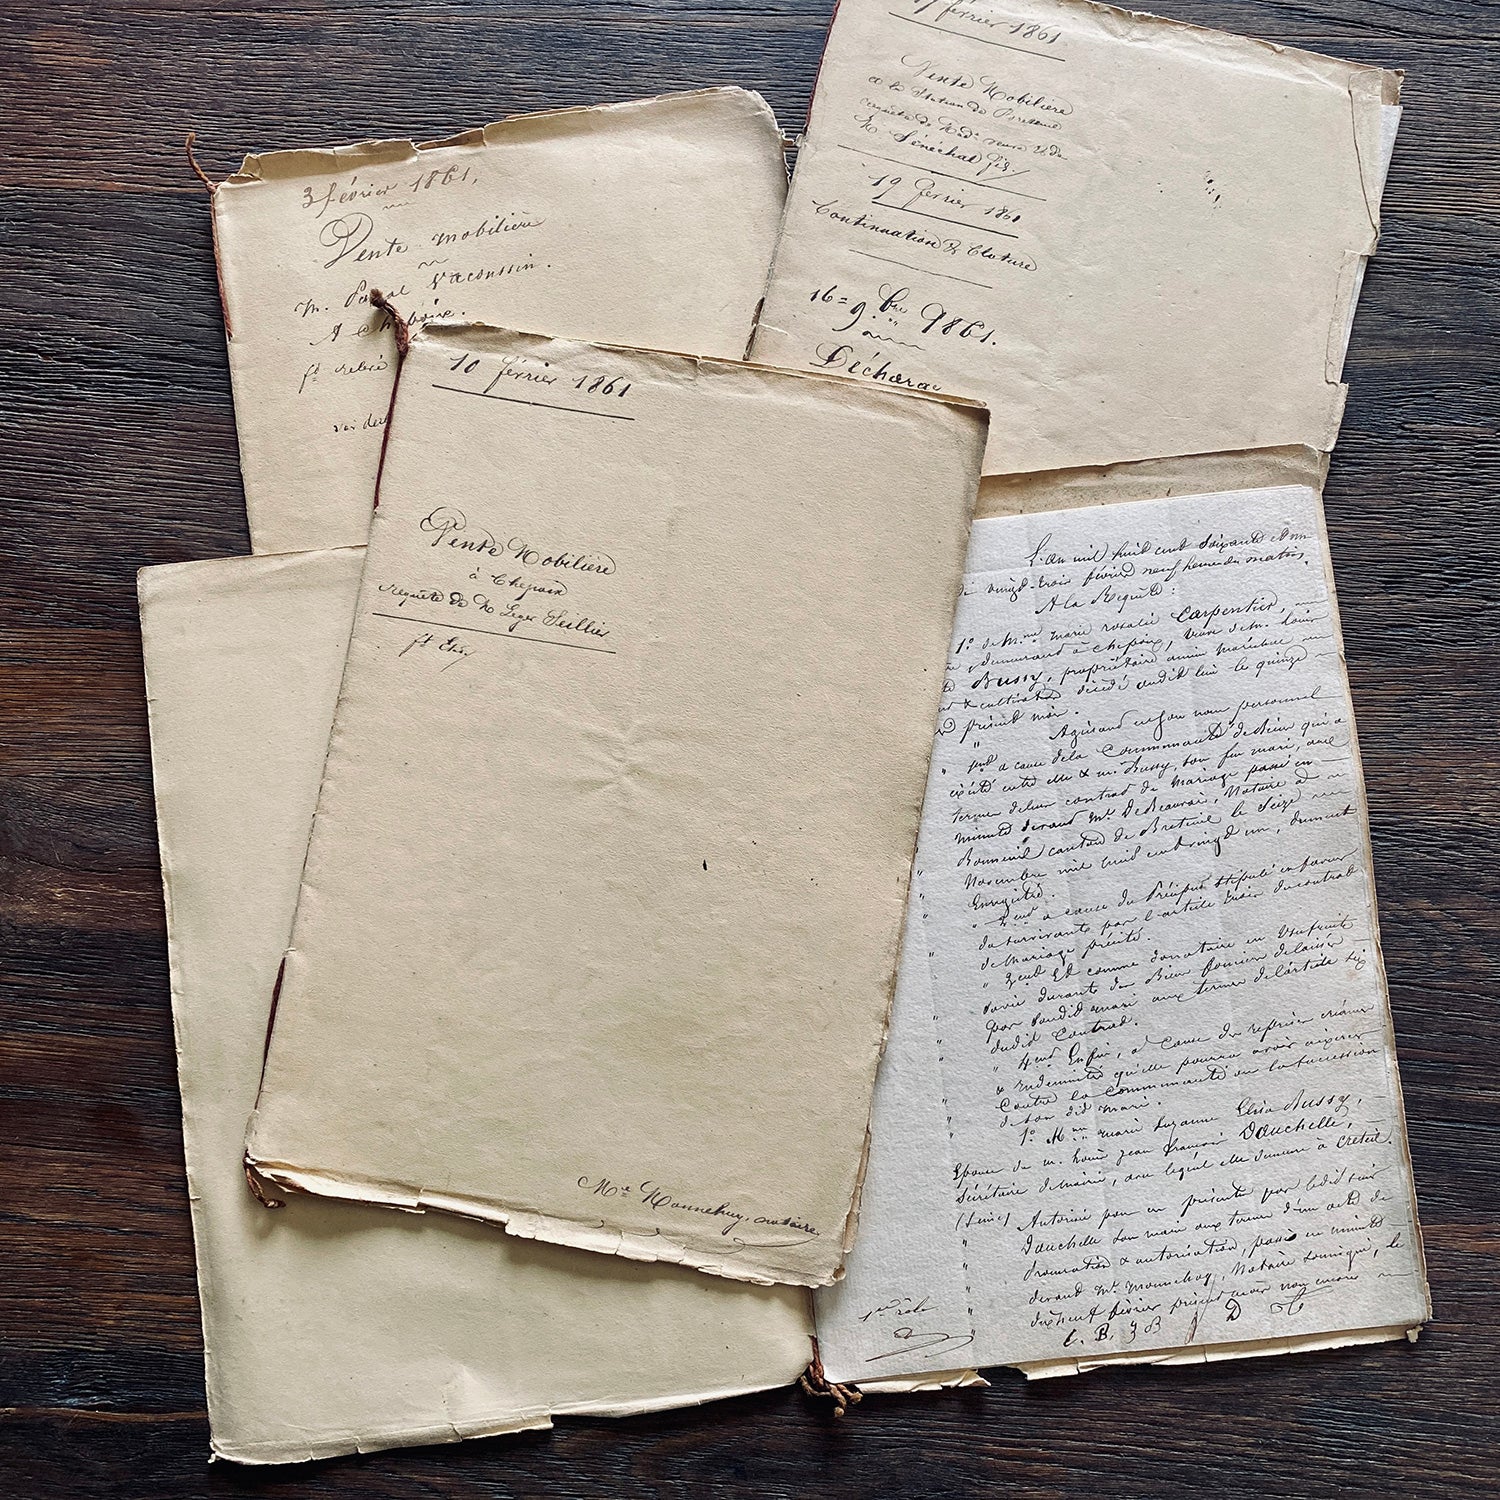 3 février 1861,
Vente mobilière
M. Vacoussin.
A
f.d
février 1861
Vente Mobilière
a la Station de
requête de Mad. veuve &
M Sénéchal
19 février 1861
Continuation & Cloture
16 = 9.bre 1861.
Décharge
10 février 1861
Vente Mobilière
à Chepoix
requête de M Leger Seillier
Me Monnehay, notaire
L'an mil huit cent soixante et un
vingt-trois février neuf heures du matin,
A la Requête :
1o de Mme marie rosalie Carpentier,
demeurant à Chepoix, veuve de M. Louis
Bussy, propriétaire ancien maréchal
& cultivateur décédé audit lieu le quinze
présent mois.
" Agissant en son nom personnel
" à cause de la Communauté de biens qui a
existé entre elle & M. Bussy, son feu mari, aux
termes de leur contrat de mariage passé en
minute devant Me DeBeauvais, Notaire à
Bonneuil canton de Breteuil le seize
Novembre mil huit cent vingt un, dument
Enregistré.
" à cause du Préciput stipulé en faveur
du survivant par l'article du contrat
de mariage précité.
" Et comme donataire en Usufruit
sa vie durant des Biens fonciers délaissés
par sondit mari aux termes de l'article six
dudit Contrat.
" Enfin, à cause des reprises créances
& indemnités qu'elle pourra avoir à exercer
Contre la Communauté ou la succession
de son dit mari.
" 1o Mme marie suzanne Elisa Bussy,
Epouse de M. Louis Jean françois Dauchelle,
Sécrétaire de mairie, avec lequel elle demeure à Créteil.
(Seine) Autorisé pour en présente par ledit sieur
Dauchelle son mari aux termes d'un acte de
Procuration & autorisation, passé en minute
devant Me Monnehay, Notaire soussigné, le
dixneuf février présent mois non encore
1er rôle
C. B. 3 B D